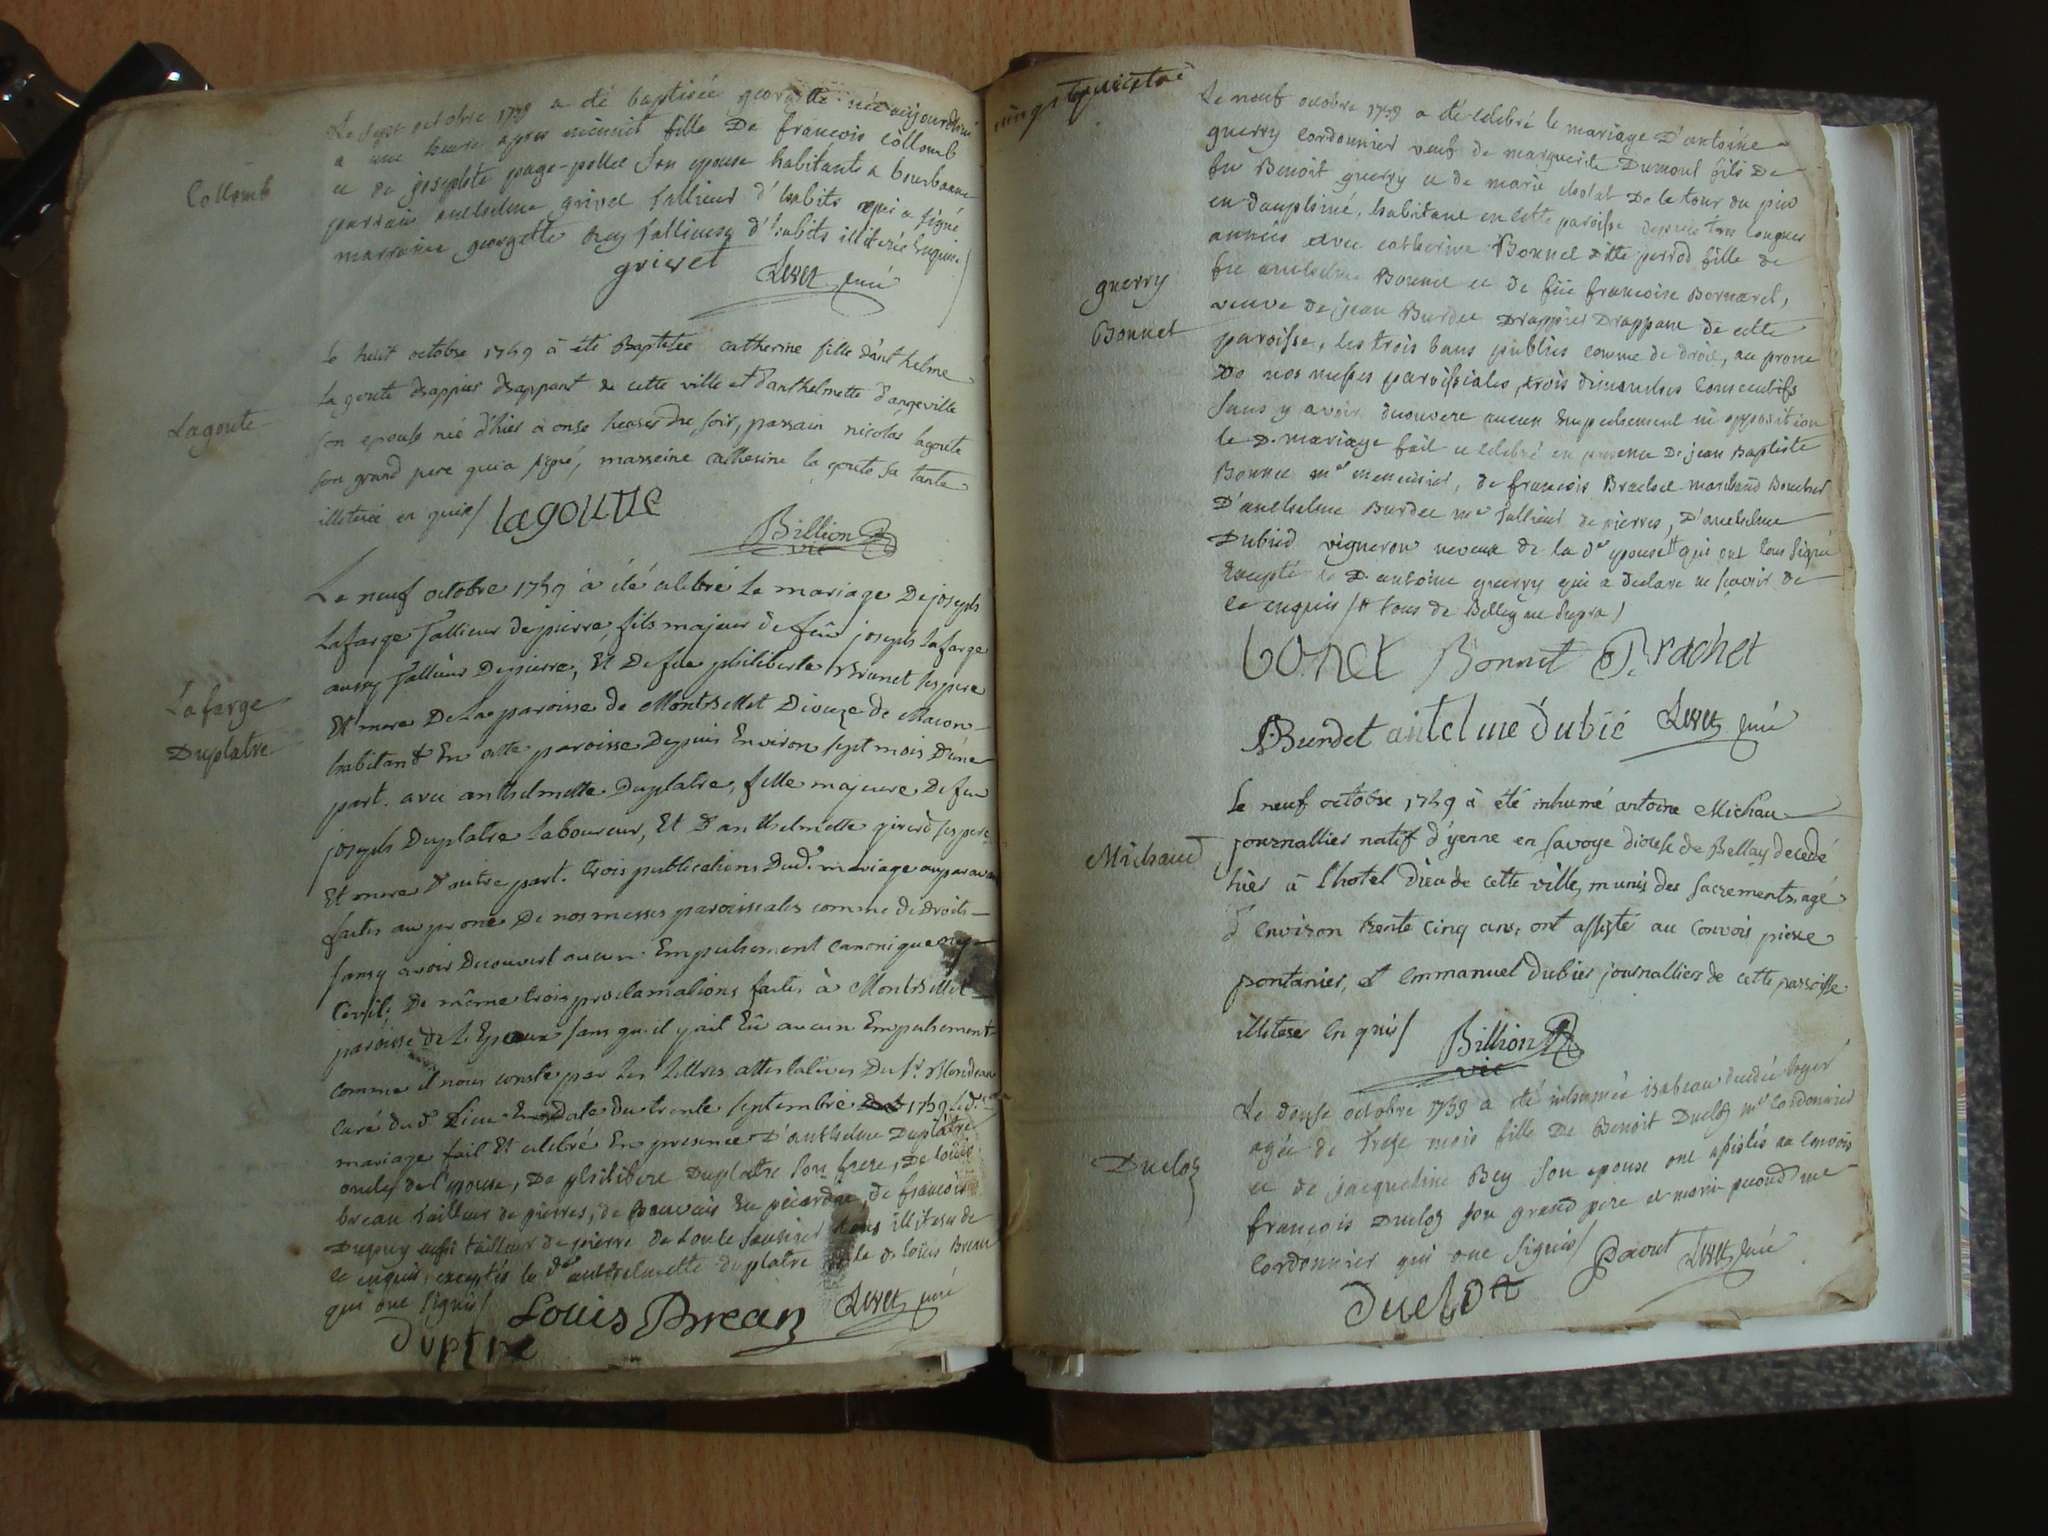 Collomb
Le sept octobre 1759 a été baptisée georgette née aujourdhui
a une heure apres minuit fille De francois Collomb
et de josephte page-pollet son epouse habitants a bourbanne
parrain anthelme grivet tallieur d'habits qui a signé
marraine georgette Rey tallieuse d'habits illiterée enquise /
grivet Levet curé
Lagoute
le huit octobre 1759 à été Baptisée catherine fille d'anthelme
la goute drappier drappant de cette ville et d'anthelmette d'angeville
son epouse née d'hier à onse heures du soir, parrain nicolas lagoute
son grand pere qui a signé, marreine catherine la goute sa tante
illiterée en quise / lagoutte
Billion
vic
Lafarge
Duplatre
Le neuf octobre 1759 à été célébré Le mariage De joseph
Lafarge Tallieur de pierre, fils majeur de feû joseph Lafarge
aussy Tallieur De pierre, Et De fue philiberte Brunet ses pere
Et mere De La paroisse de Montbellet Dioceze de Macon
habitant En cette paroisse Depuis Environ sept mois D'une
part. avec anthelmette Duplatre, fille majeure De feu
joseph Duplatre Laboureur, Et D'anthelmette girerd ses pere
Et mere D'autre part. trois publications Dud.t mariage auparavant
faites au prone De nos messes paroissiales comme de Droits
sans y avoir Decouvert aucun Empechement canonique ny
Civil; De même trois proclamations faites à Montbellet
paroisse de L'Epoux sans qu'il y ait Eû aucun Empechement
comme il nous conste par Les Lettres attestatives Du S.r Blondeau
curé dud.t Lieu En Date du trente septembre 1759, Le d.t
mariage fait Et célébré En presence D'anthelme Duplatre
oncle de l'epouse, De philibert Duplatre son frere, De loüis
brean tailleur de pierres, de Beauvais En picardie, de francois
Dupuy aussi tailleur de pierre de Lon le saunier tous illiterés de
ce enquis, exceptés la d.te anthelmette duplatre et le d. loüis Brean
qui ont signés /
Louis Brean Levet curé
duptre
Le neuf octobre 1759 a été celebré le mariage D'antoine
guerry Cordonnier veuf de marguerite Dumont fils De
feu Benoit guerry et de marie cholat De la tour du pin
guerry
Bonnet
en dauphiné, habitant en cette paroisse depuis tres longues
années avec catherine Bonnet ditte perrod fille de
feu anthelme Bonnet et de füe francoise Bornarel,
veuve de jean Burdet Drappier Drappant de cette
paroisse, les trois bans publiés comme de droit, au prone
De nos messes paroissiales, trois dimanches Consecutifs
sans y avoir decouvert aucun Empechement ni opposition
le D. mariage fait et celebré en presence De jean Baptiste
Bonnet m.e menuisier, de francois Brachet marchand Boucher
D'anthelme Burdet m.e tallieur de pierres, D'anthelme
Dubied vigneron neveux de la d.te epouse # qui ont tous signé
Excepté le D. antoine guerry qui a declare ne scavoir de
ce enquis / # tous de Belley
bonet Bonnet Brachet
Burdet antelme dubié Levet curé
Michaud
Le neuf octobre 1759 à été inhumé antoine Michau
journallier natif d'yenne en savoye diocese de Bellay decedé
hier à l'hotel dieu de cette ville, munis des sacrements, agé
d'environ trente cinq ans, ont assisté au convois pierre
pontanier, et Emmanuel dubier journalliers de cette paroisse
illiteres en quis / Billion
vic
Duclos
Le douse octobre 1759 a été inhumée isabeau
agée de treze mois fille De Benoit Duclos m.e Cordonnier
et de jacqueline Bey son epouse ont assistés au convois
francois Duclos son grand pere et
Cordonnier qui ont signés / Levet curé
duclos